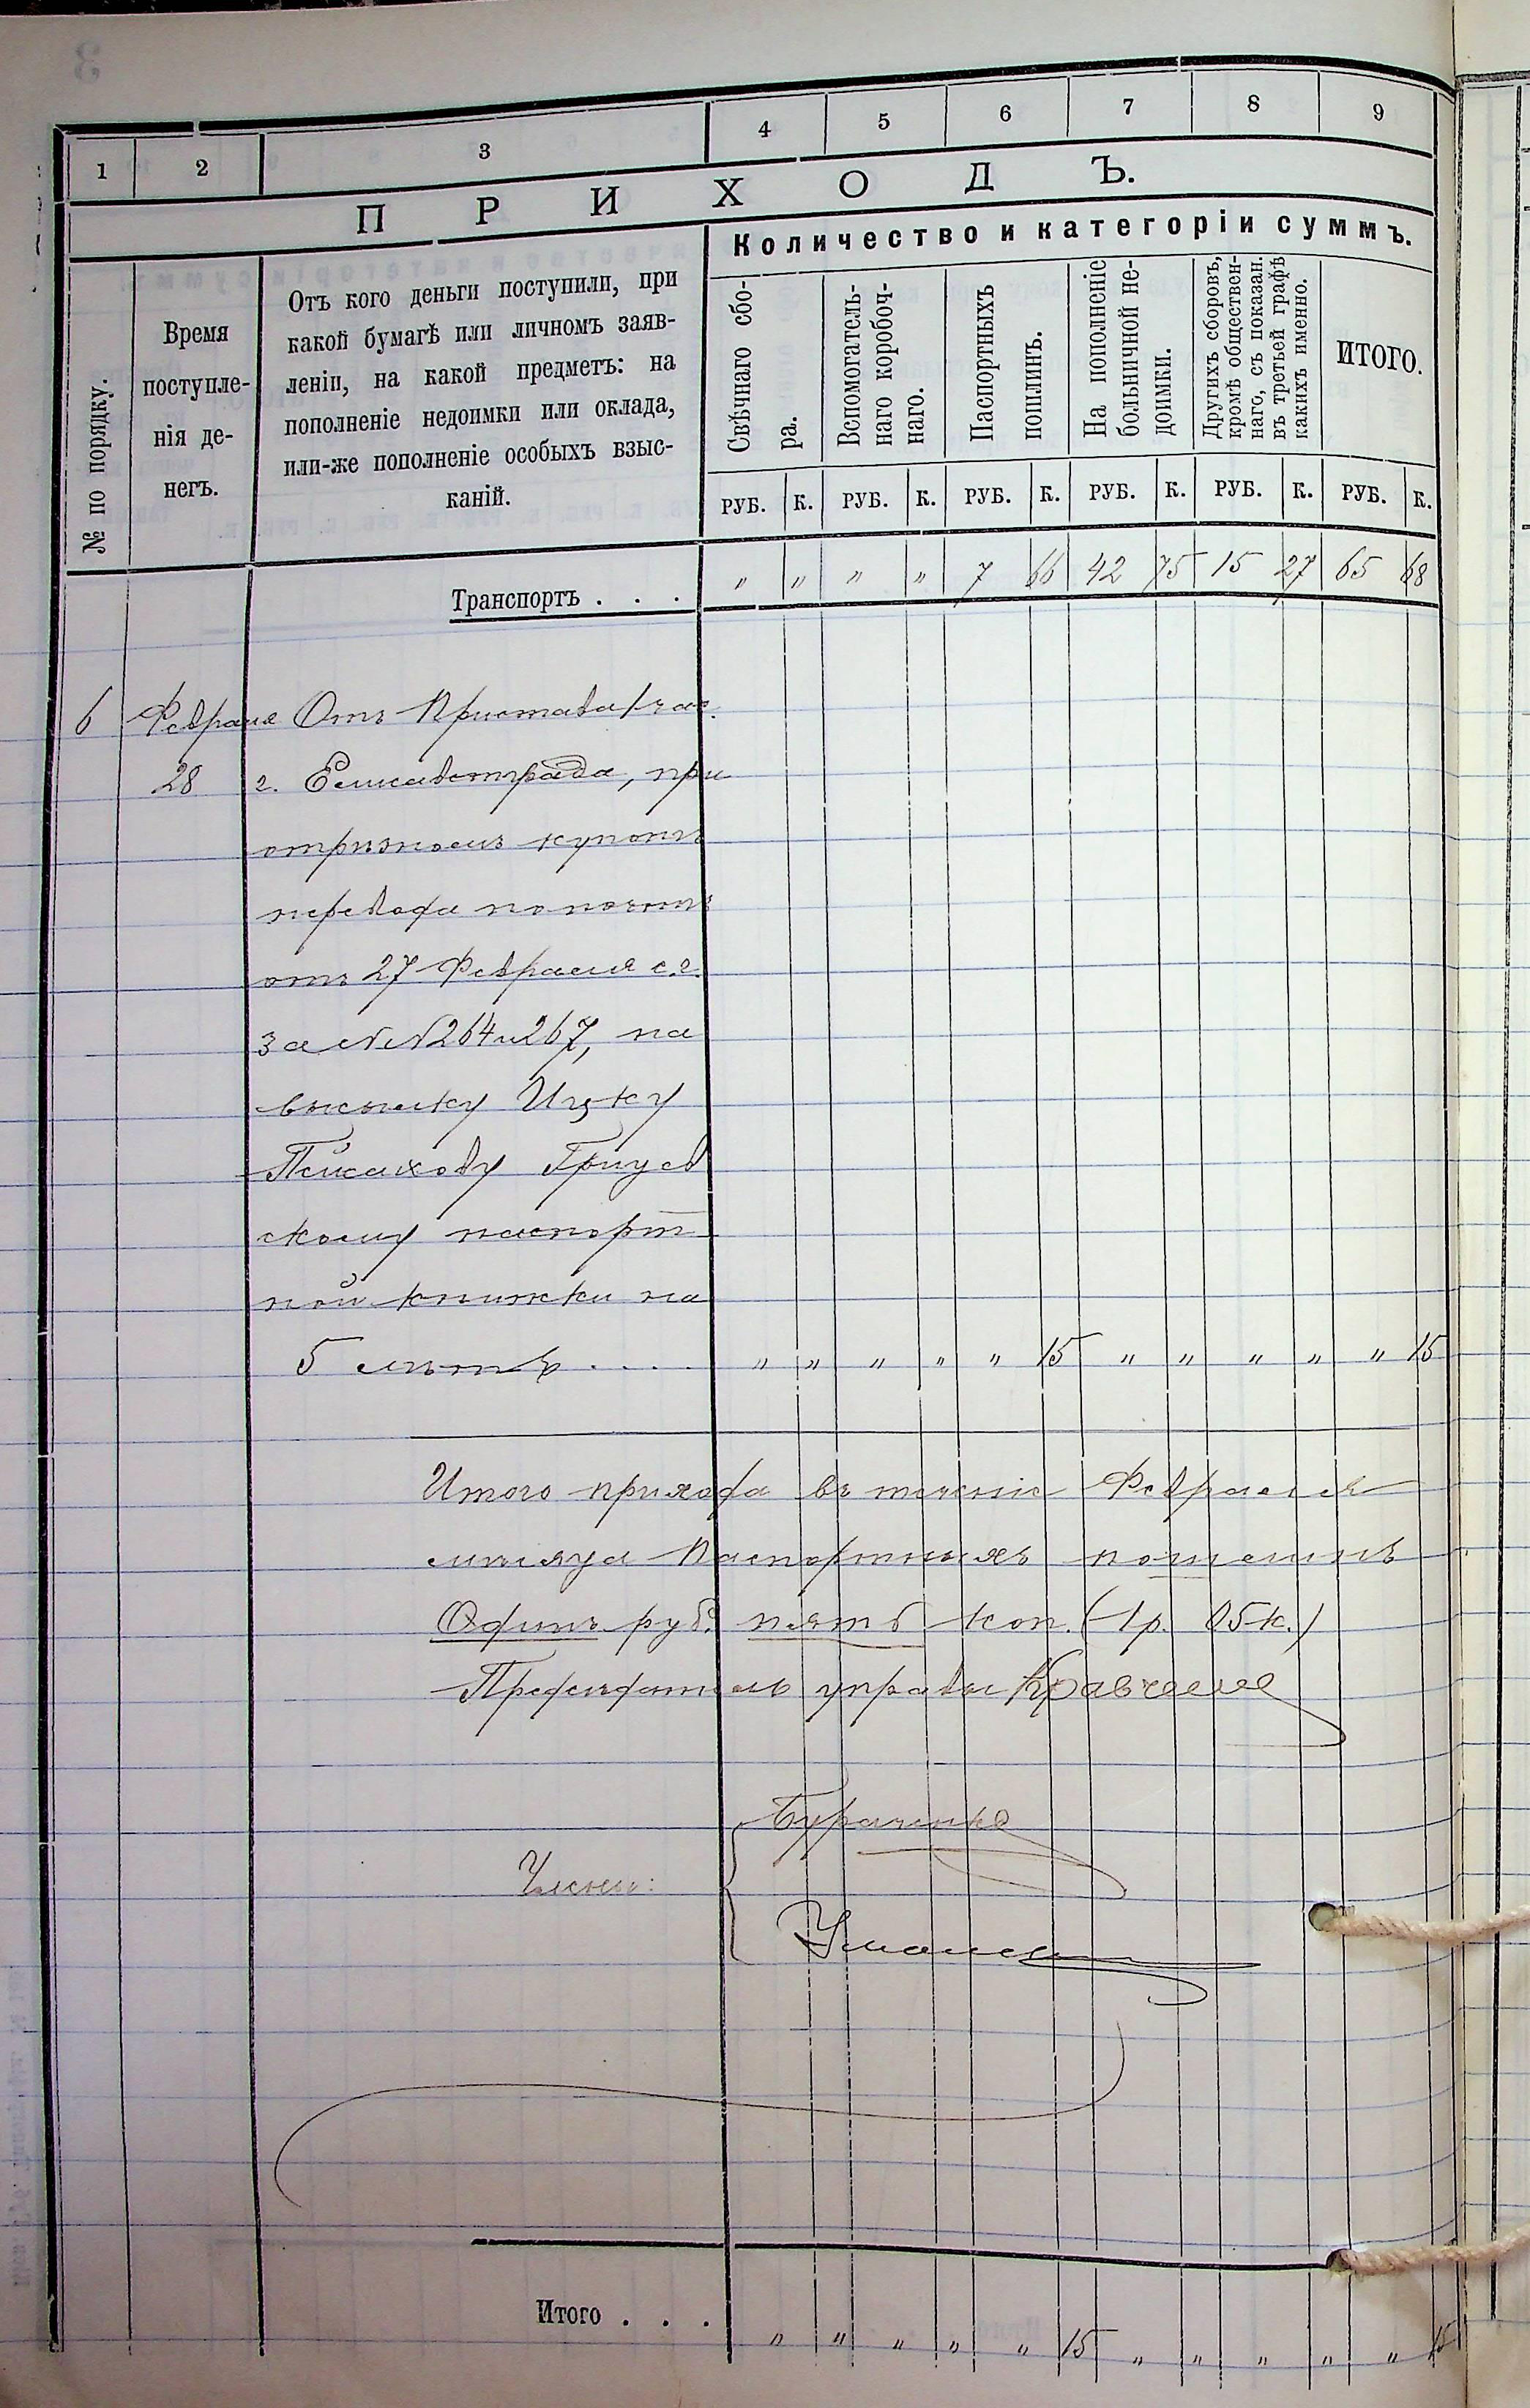 1 2 3 4 5 6 7 8 9
ПРИХОДЪ.
Количество и категоріи суммъ.
№ по порядку.
Время
поступле-
нія де-
негъ.
Отъ кого деньги поступили, при
какой бумагѣ или личномъ заяв-
леніи, на какой предметъ: на
пополненіе недоимки или оклада,
или-же пополненіе особыхъ взыс-
каній.
Свѣчнаго сбо-
ра.
Вспомогатель-
наго коробоч-
наго.
Паспортныхъ
пошлинъ.
На пополненіе
больничной не-
доимки.
Другихъ сборовъ,
кромѣ обществен-
наго, съ показан.
въ третьей графѣ
какихъ именно.
ИТОГО.
РУБ. К. РУБ. К. РУБ. К. РУБ. К. РУБ. К. РУБ. К.
Транспортъ . . . " " " " 7 66 42 75 15 27 65 68
6 Февраля Отъ Пристава 1 час.
28 г. Елисаветграда, при
отрѣзномъ купонѣ
перевода по почтѣ
отъ 27 Февраля с.г.
за №№ 264 и 267, на
высылку Ицку
Пейсахову Грицев
скому паспорт-
ной книжки на
5 лѣтъ . . . . " " " " " 15 " " " " " 15
Итого прихода въ теченіе Февраля
мѣсяца Паспортныхъ пошлинъ
Одинъ руб. пять коп. (1 р. 05 к.)
Предсѣдатель управы Кравченко
Бураченко
Члены:
Итого . . . " " " " " 15 " " " " " 15